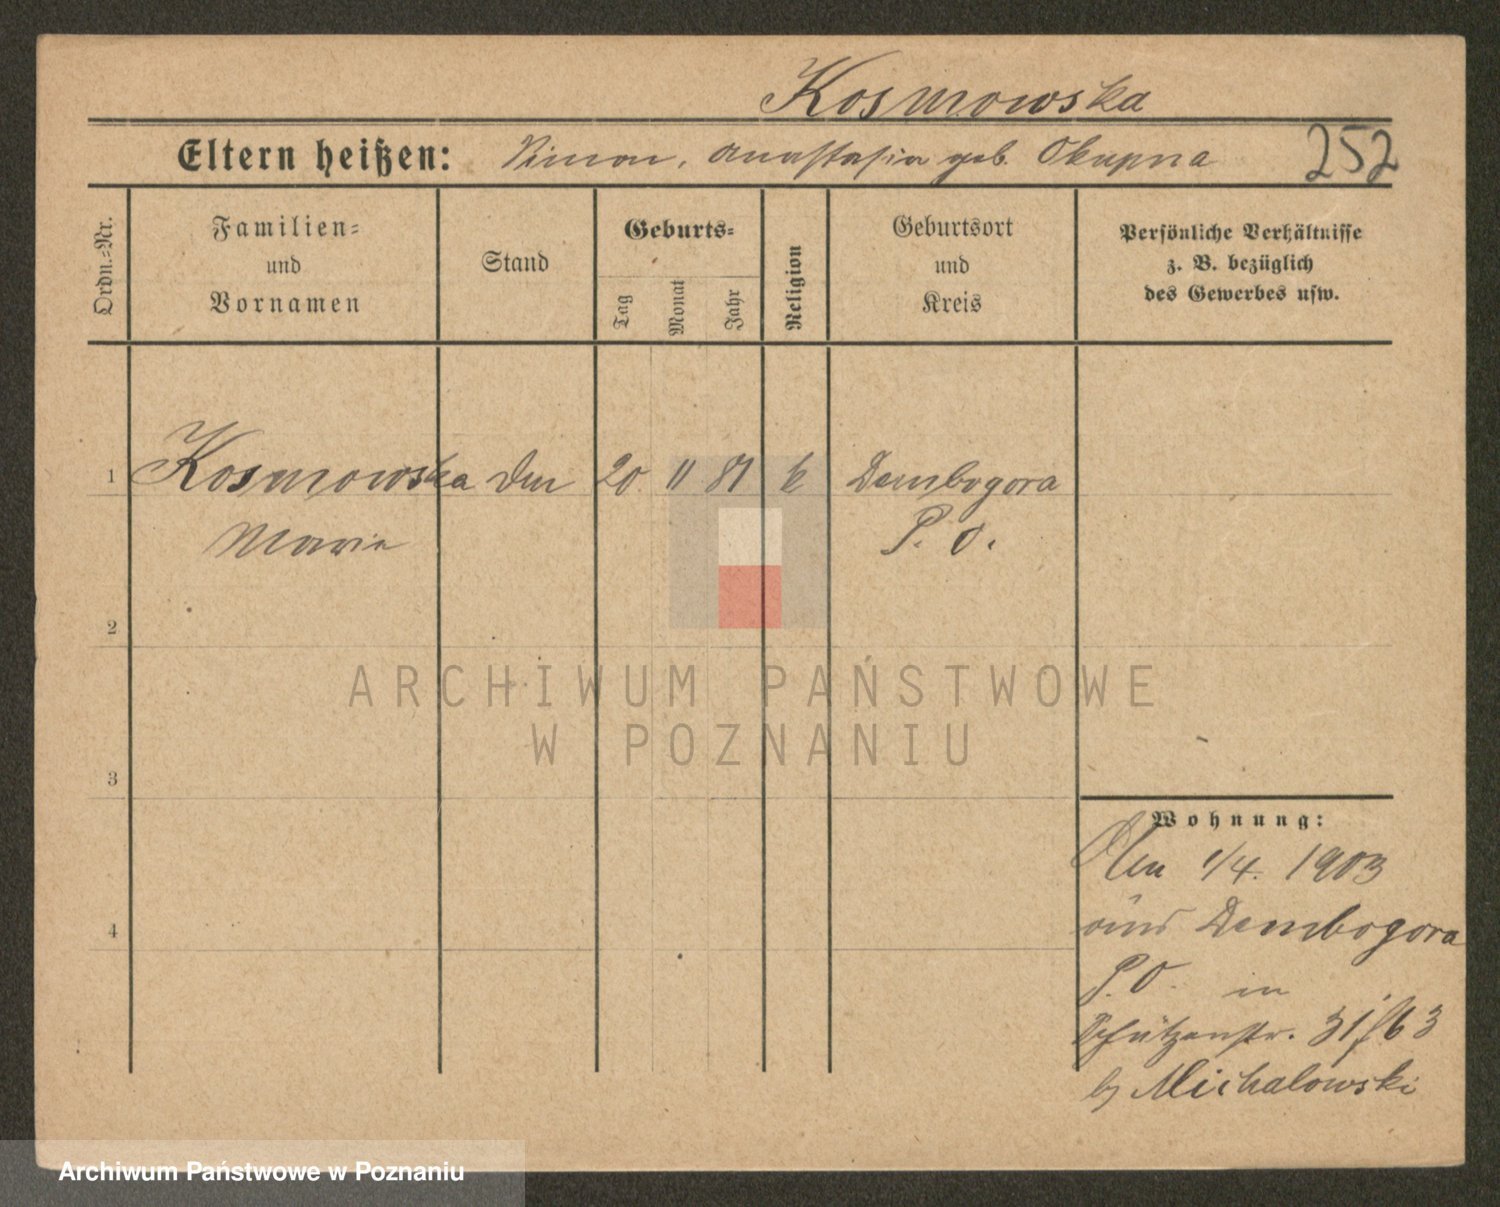 Kosmowska
Eltern heißen: Simon, Anastasia geb. Okupna 252
Ordn.-Nr.
Familien-
und
Vornamen
Stand
Geburts-
Tag
Monat
Jahr
Religion
Geburtsort
und
Kreis
Persönliche Verhältnisse
z. B. bezüglich
des Gewerbes usw.
1 Kosmowska 20 11 81 k Dembogora
Marie P. O.
2
3
4
Wohnung:
1/4. 1903
aus Dembogora
P. O. in
Schützenstr. 31
b/ Michalowski
ARCHIWUM PAŃSTWOWE
W POZNANIU
Archiwum Państwowe w Poznaniu